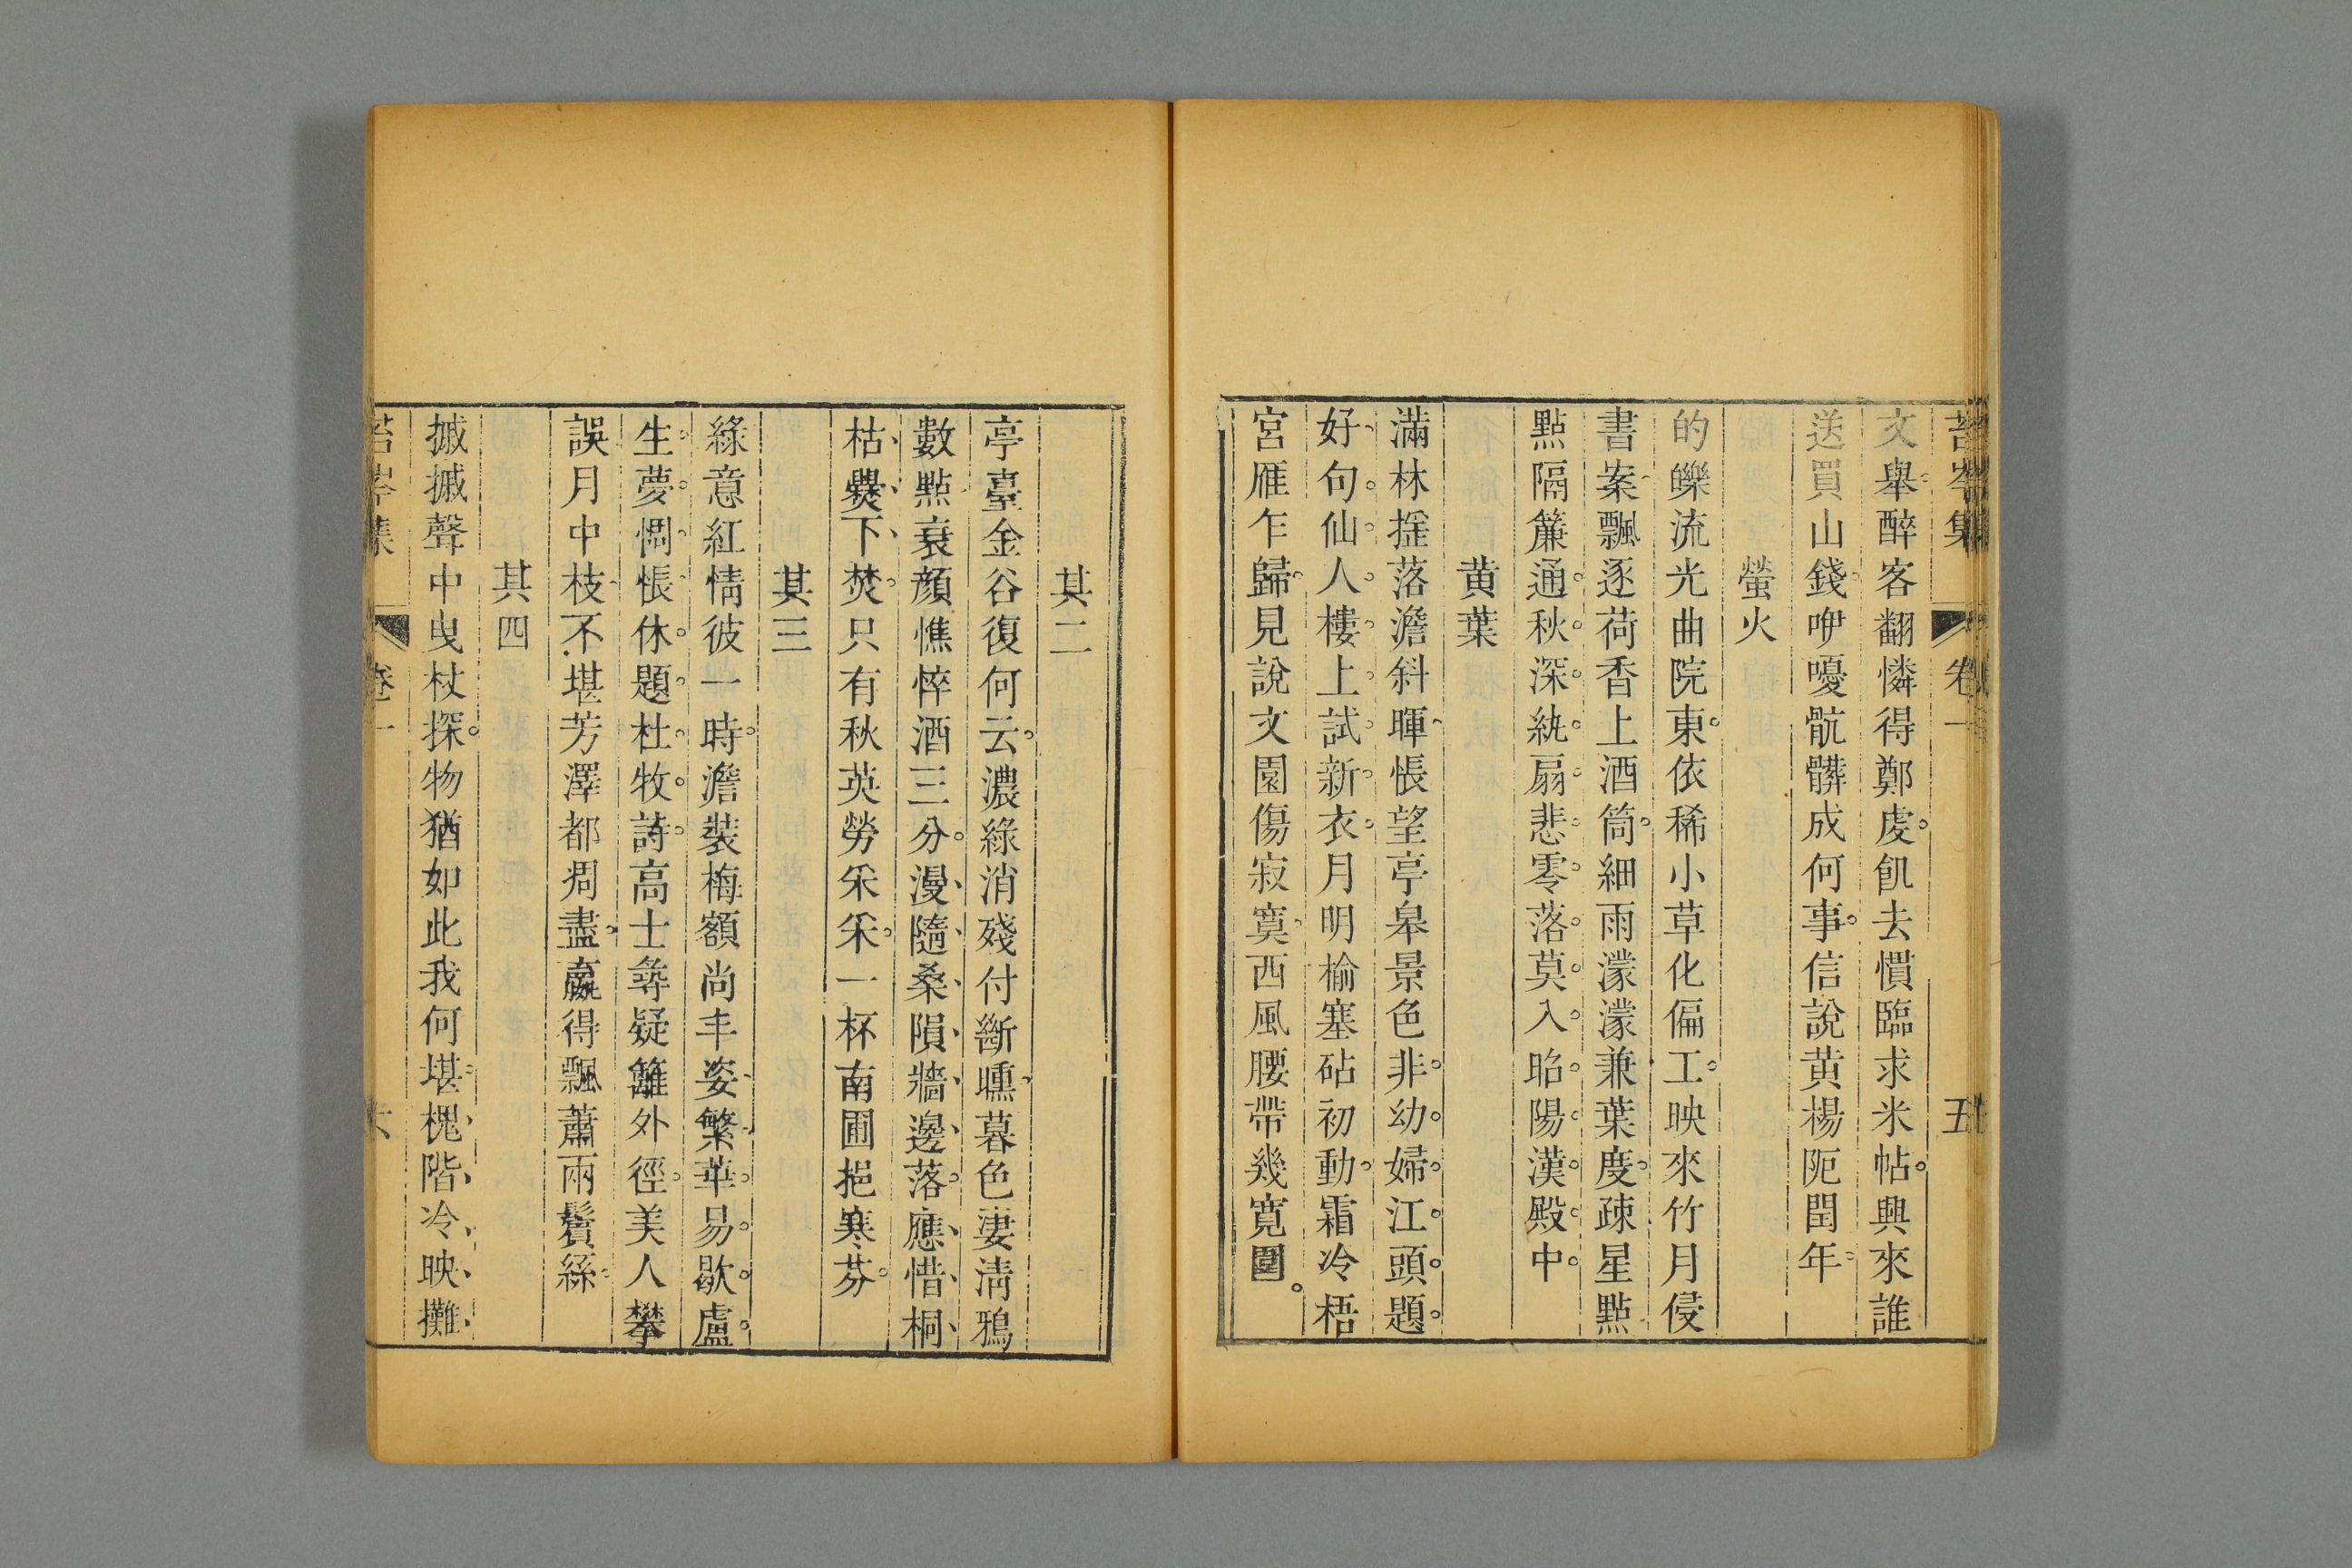 苔岑集 卷一 五
文舉醉客翻憐得鄭虔飢去慣臨求米帖興來誰
送買山錢咿嚘骯髒成何事信說黃楊阨閏年
螢火
的皪流光曲院東依稀小草化偏工映來竹月侵
書案飄逐荷香上酒筒細雨濛濛兼葉度疎星點
點隔簾通秋深紈扇悲零落莫入昭陽漢殿中
黃葉
滿林搖落澹斜暉悵望亭皋景色非幼婦江頭題
好句仙人樓上試新衣月明榆塞砧初動霜冷梧
宮雁乍歸見說文園傷寂寞西風腰帶幾寬圍
其二
亭臺金谷復何云濃綠消殘付斷曛暮色淒淸鴉
數點衰顏憔悴酒三分漫隨桑隕牆邊落應惜桐
枯爨下焚只有秋英勞采采一杯南圃挹寒芬
其三
綠意紅情彼一時澹裝梅額尚丰姿繁華易歇盧
生夢惆悵休題杜牧詩高士尋疑籬外徑美人攀
誤月中枝不堪芳澤都凋盡贏得飄蕭兩鬢絲
其四
摵摵聲中曳杖探物猶如此我何堪槐階冷映攤
苔岑集 卷一 六